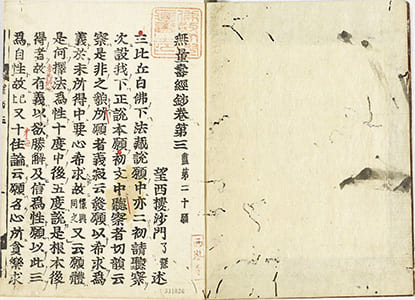 無量壽經鈔卷第三 盡第二十願
望西樓沙門了慧述
三比丘白佛下法藏說願中亦二初請聽察
次說我下正說本願初文中聽察者切韻云
察是非之貌所願者義寂云發願以希求為
義於未所得中要心希求故憬興同之又云願體
是何擇法為性十度中後五度說是根本後
得者故有義以欲勝解及信為性願以此三
為自性故已又十住論云願名心所貪樂求